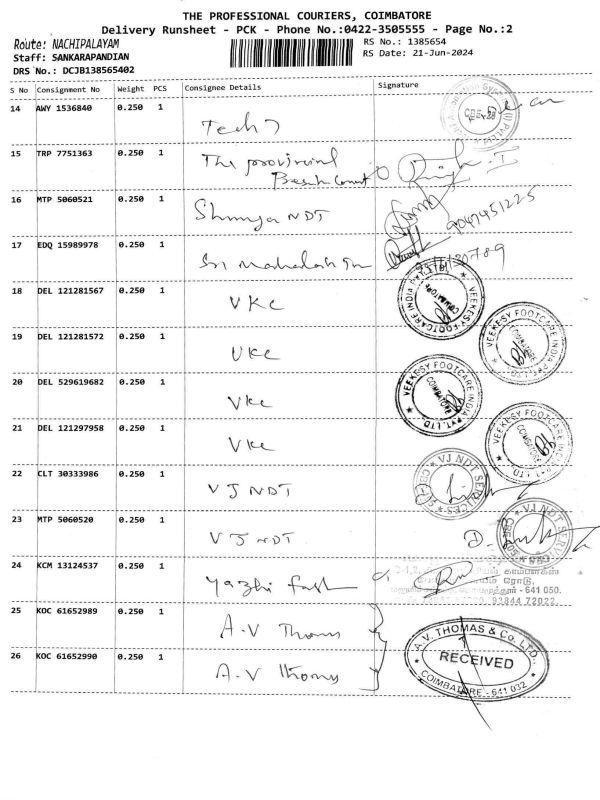 THE PROFESSIONAL COURIERS, COIMBATORE
Delivery Runsheet - PCK - Phone No.:0422-3505555 - Page No.:2
Route: NACHIPALAYAM
RS No.: 1385654
Staff: SANKARAPANDIAN
RS Date: 21-Jun-2024
DRS No.: DCJB138565402
S No Consignment No Weight PCS Consignee Details Signature
14 AWY 1536840 0.250 1 Tech 7
15 TRP 7751363 0.250 1 The provincial
16 MTP 5060521 0.250 1 Shunya NDT
9047451225
17 EDQ 15989978 0.250 1 Sri
18 DEL 121281567 0.250 1 VKC
VEEKESY FOOTCARE INDIA PVT. LTD. COIMBATORE
19 DEL 121281572 0.250 1 VKC
VEEKESY FOOTCARE INDIA PVT. LTD. COIMBATORE
20 DEL 529619682 0.250 1 VKC
VEEKESY FOOTCARE INDIA PVT. LTD. COIMBATORE
21 DEL 121297958 0.250 1 VKC
VEEKESY FOOTCARE INDIA PVT. LTD. COIMBATORE
22 CLT 30333986 0.250 1 VJ NDT
VJ NDT SERVICES
23 MTP 5060520 0.250 1 VJ NDT
VJ NDT SERVICES
24 KCM 13124537 0.250 1 Yazhi Fash
641 050.
93844 72022
25 KOC 61652989 0.250 1 A.V Thomas
26 KOC 61652990 0.250 1 A.V Thomas
A.V. THOMAS & Co. LTD.
RECEIVED
COIMBATORE - 641 032